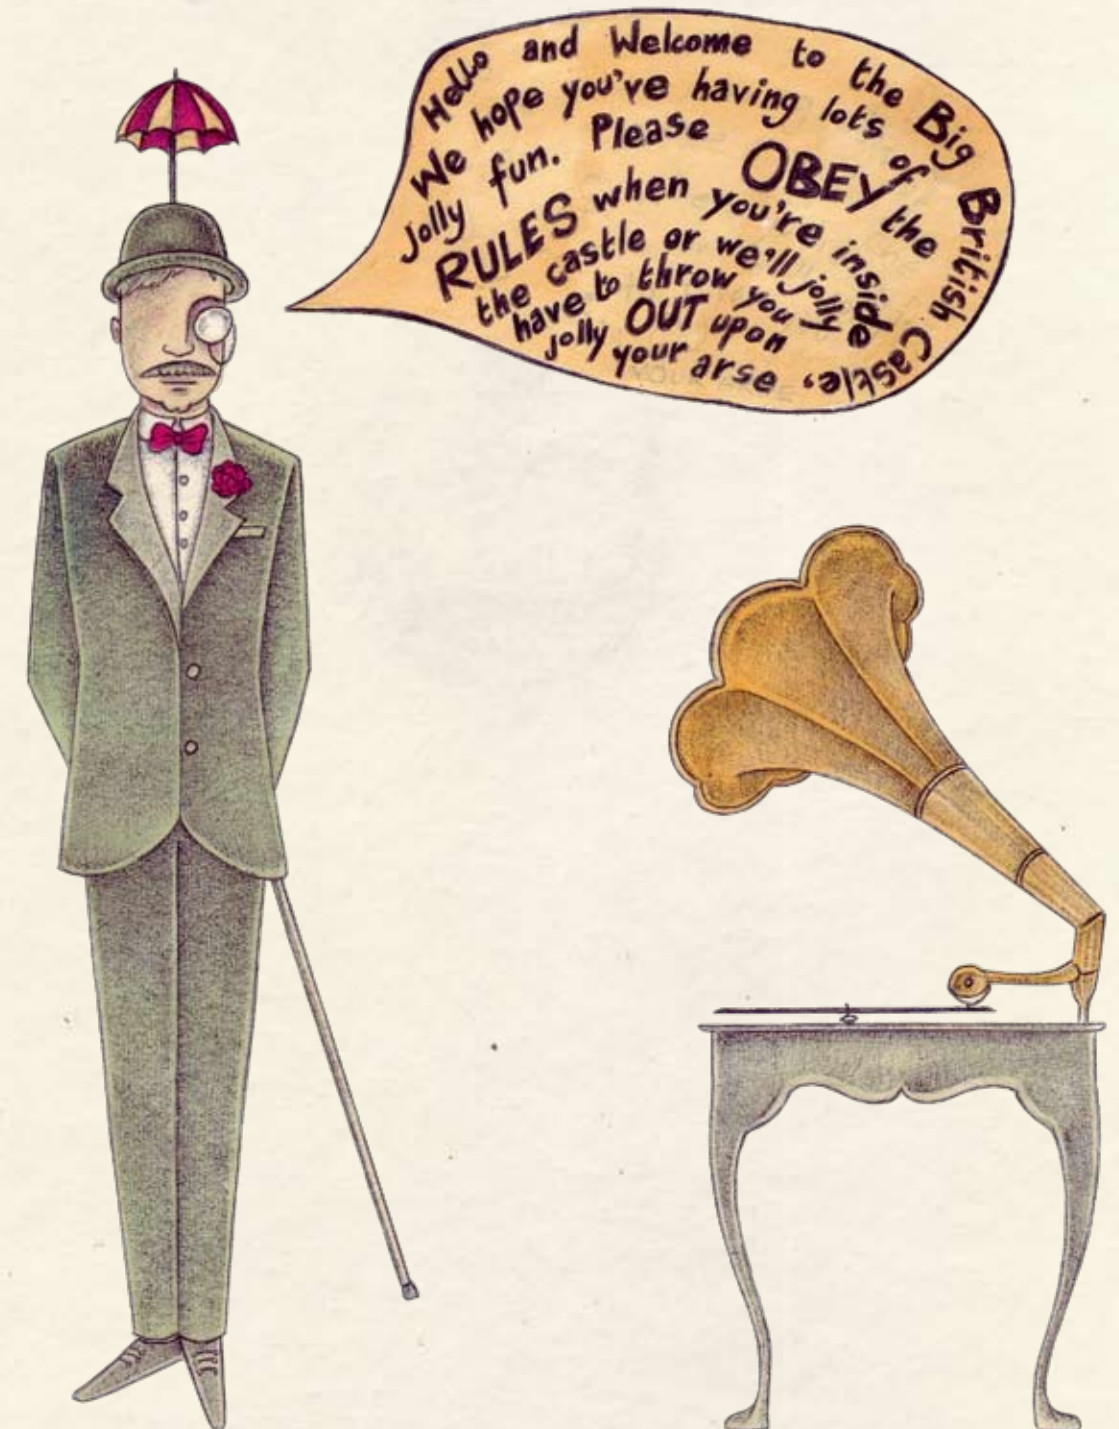 Hello and Welcome to the Big British Castle,
We hope you've having lots of
jolly fun. Please OBEY the
RULES when you're inside
the castle or we'll jolly
have to throw you
jolly OUT upon
your arse